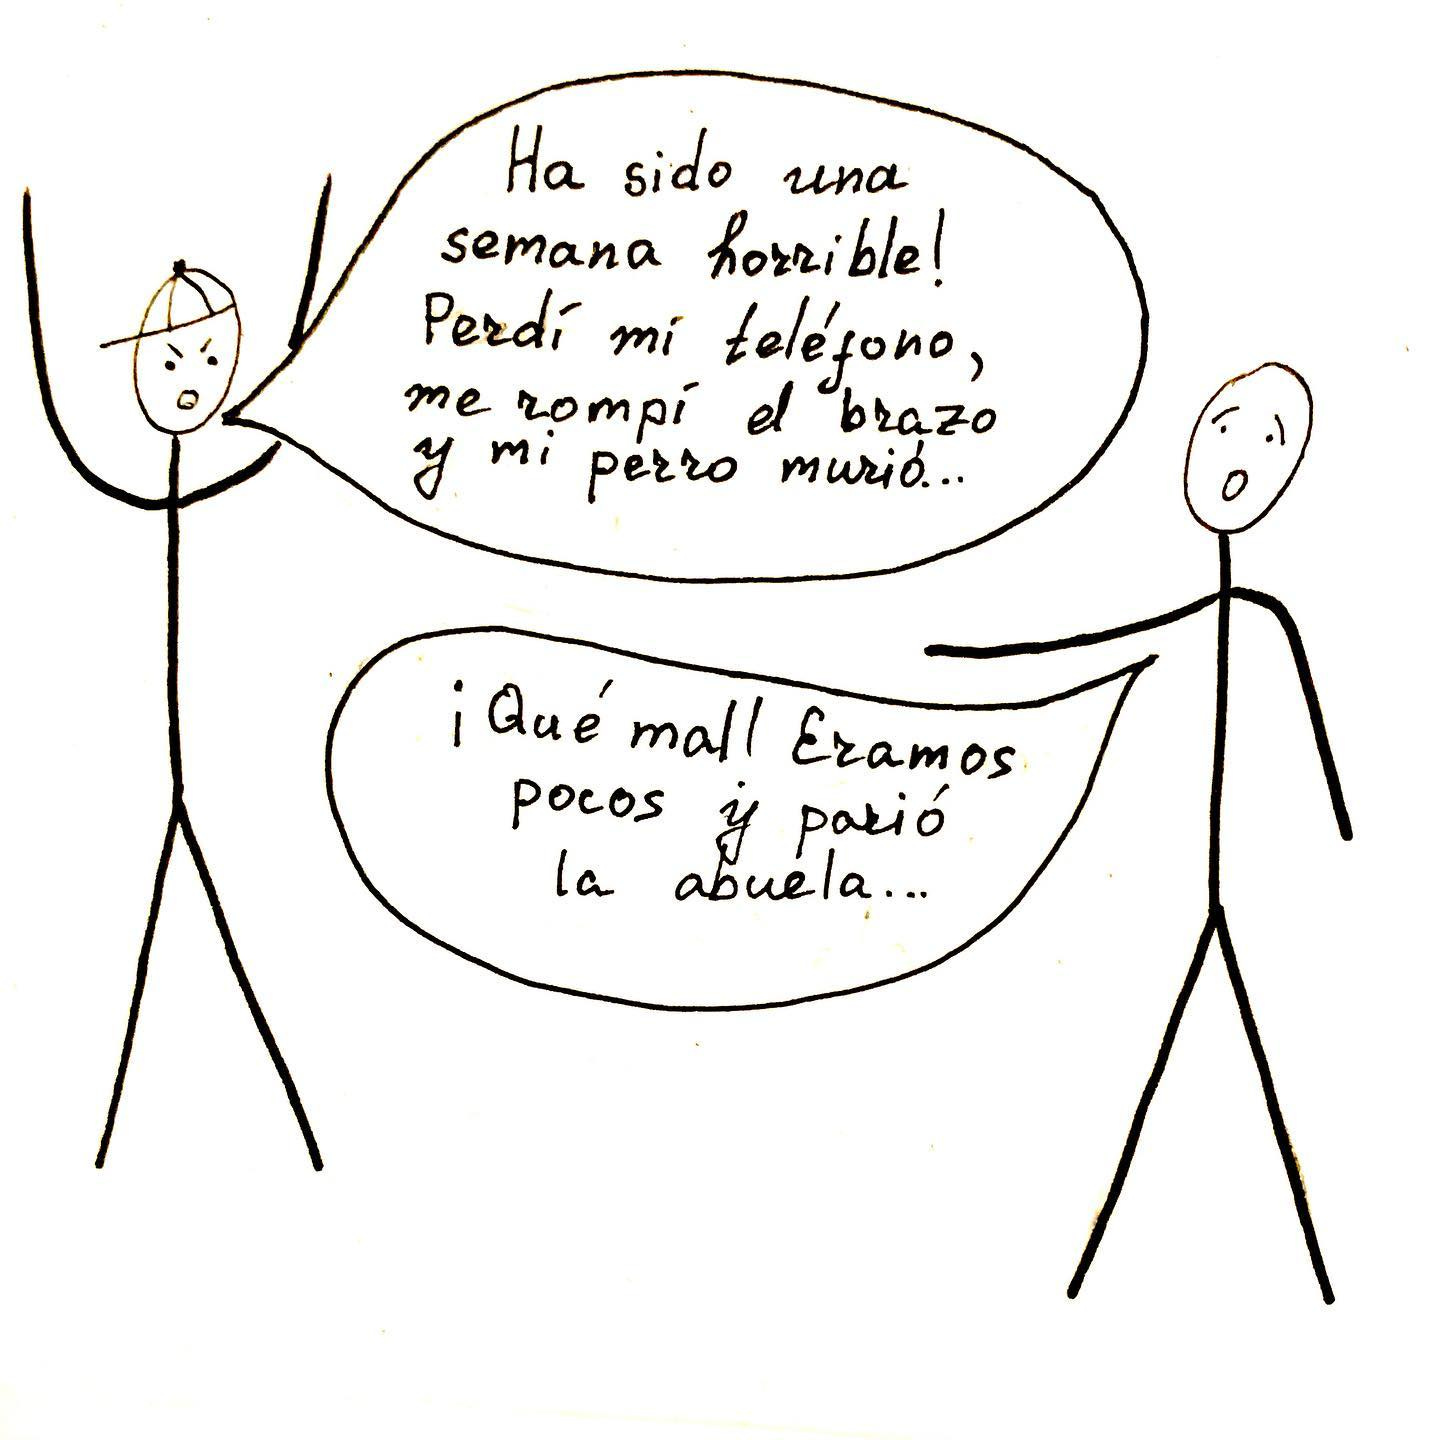 Ha sido una
semana horrible!
Perdí mi teléfono,
me rompí el brazo
y mi perro murió...
¡Qué mal! Eramos
pocos y parió
la abuela...